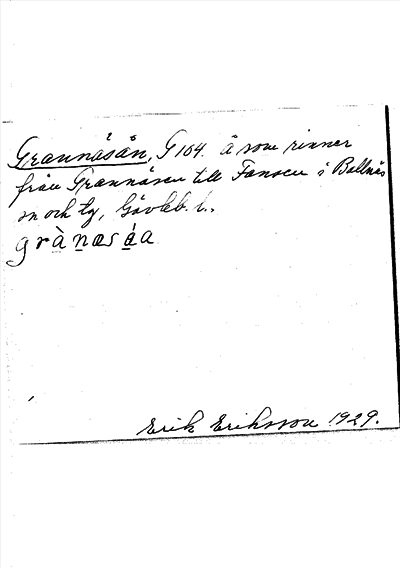 Grannåsån, G 104. å som rinner
från Grannåsen till Fansen i Bollnäs
sn och tg, Gävleb. l.,
grànæsǻa
Erik Eriksson 1929.